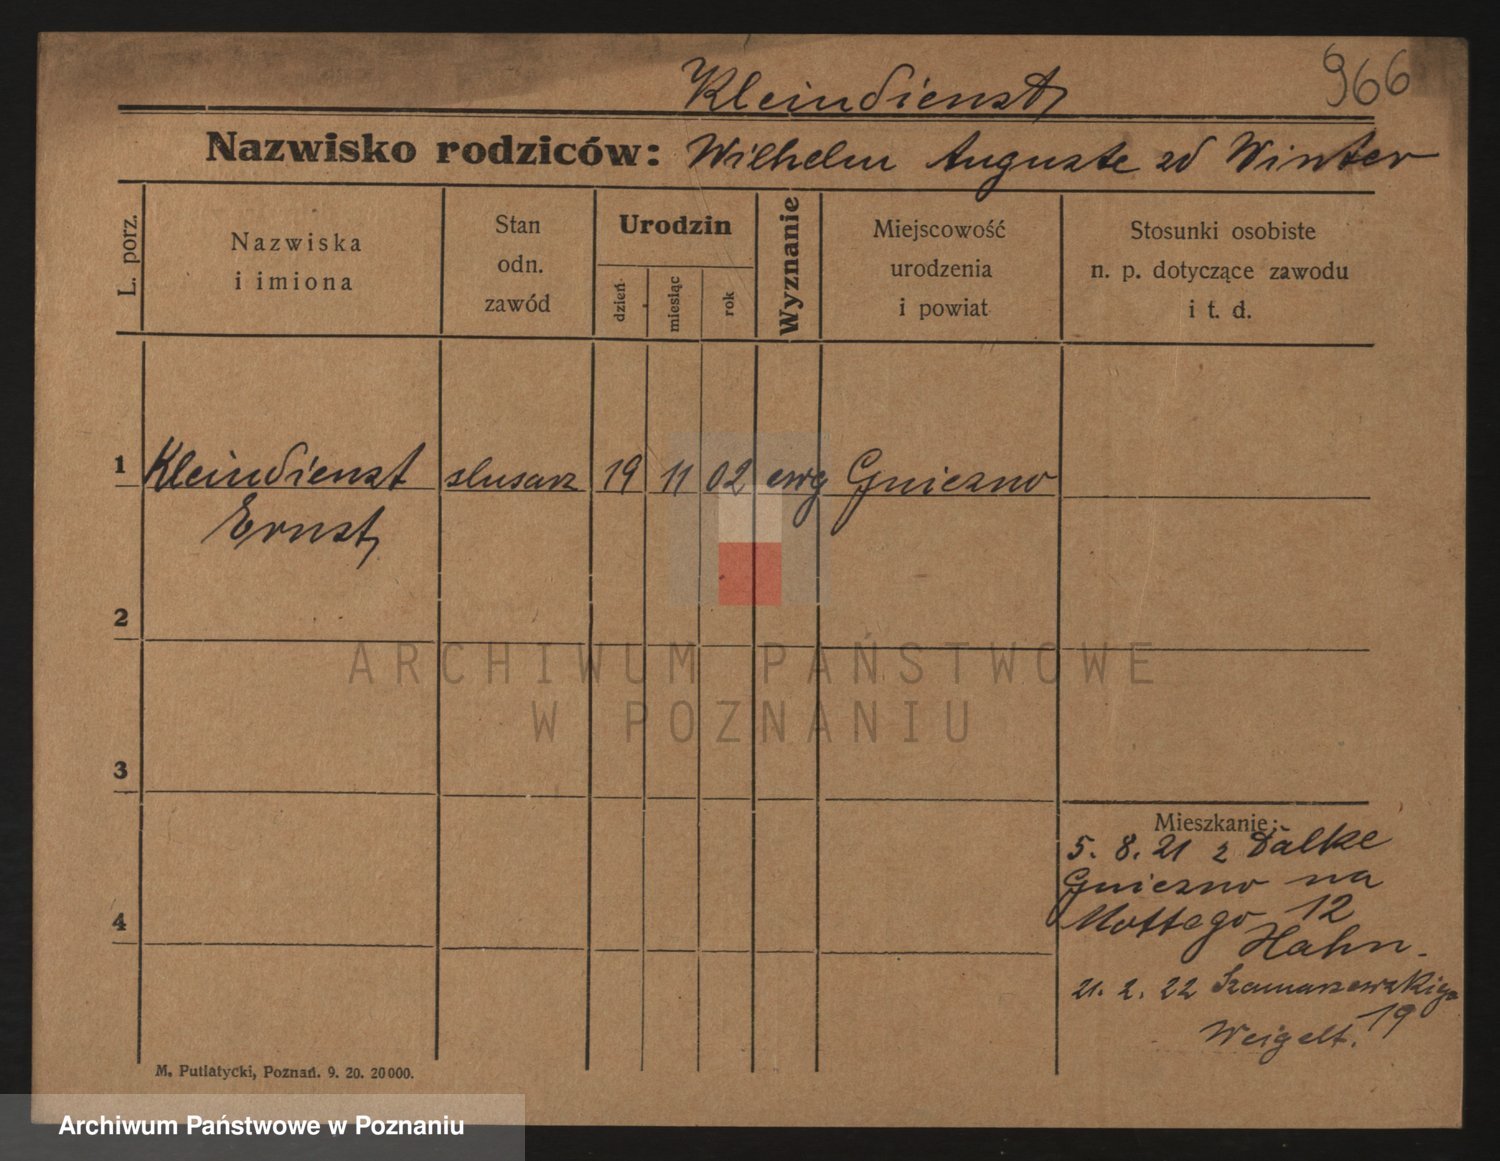 966
Kleindienst
Nazwisko rodziców: Wilhelm Auguste zd Winter
L. porz.
Nazwiska i imiona
Stan odn. zawód
Urodzin
dzień
miesiąc
rok
Wyznanie
Miejscowość urodzenia i powiat
Stosunki osobiste n. p. dotyczące zawodu i t. d.
1 Kleindienst slusarz 19 11 02 ewg Gniezno
Ernst
2
3
4
Mieszkanie:
5. 8. 21 z Dalke
Gniezno na
Mottego 12
Hahn.
21. 2. 22 Szamarzewskiego
19
Weigelt.
M. Putiatycki, Poznań. 9. 20. 20 000.
ARCHIWUM PAŃSTWOWE
W POZNANIU
Archiwum Państwowe w Poznaniu